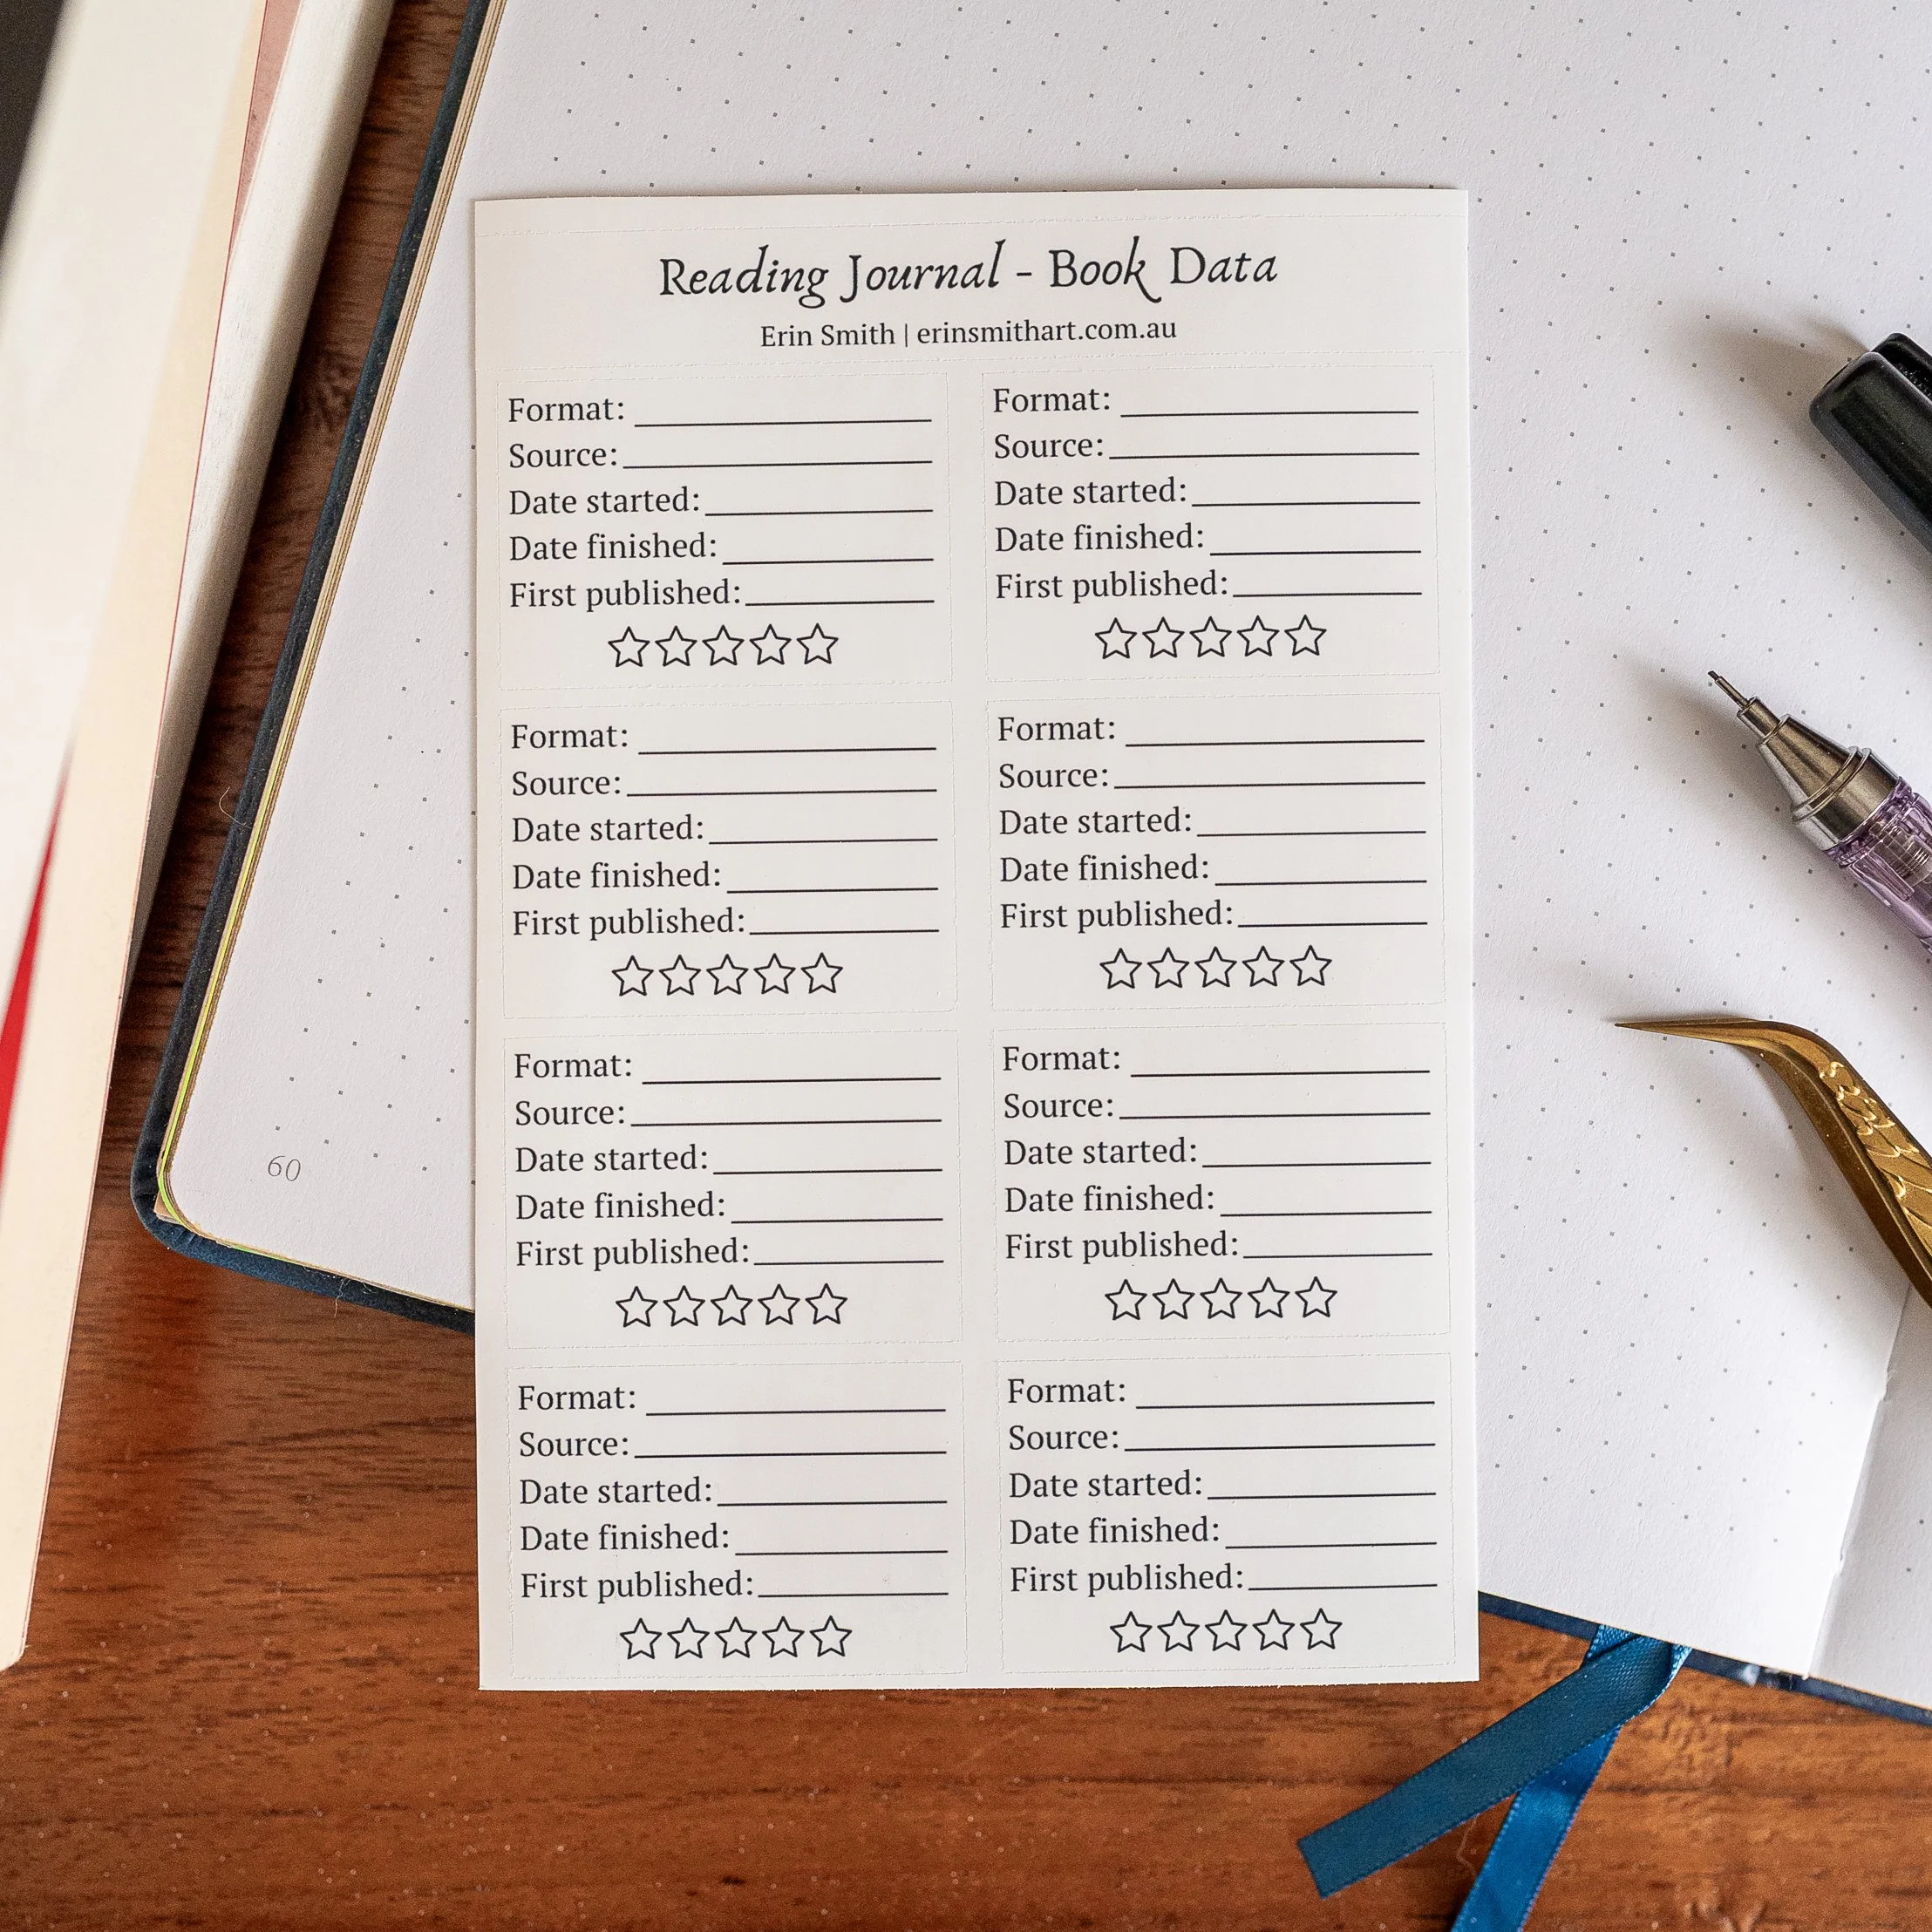 Reading Journal - Book Data
Erin Smith | erinsmithart.com.au
Format:
Source:
Date started:
Date finished:
First published:
Format:
Source:
Date started:
Date finished:
First published:
Format:
Source:
Date started:
Date finished:
First published:
Format:
Source:
Date started:
Date finished:
First published:
Format:
Source:
Date started:
Date finished:
First published:
Format:
Source:
Date started:
Date finished:
First published:
Format:
Source:
Date started:
Date finished:
First published:
Format:
Source:
Date started:
Date finished:
First published:
60